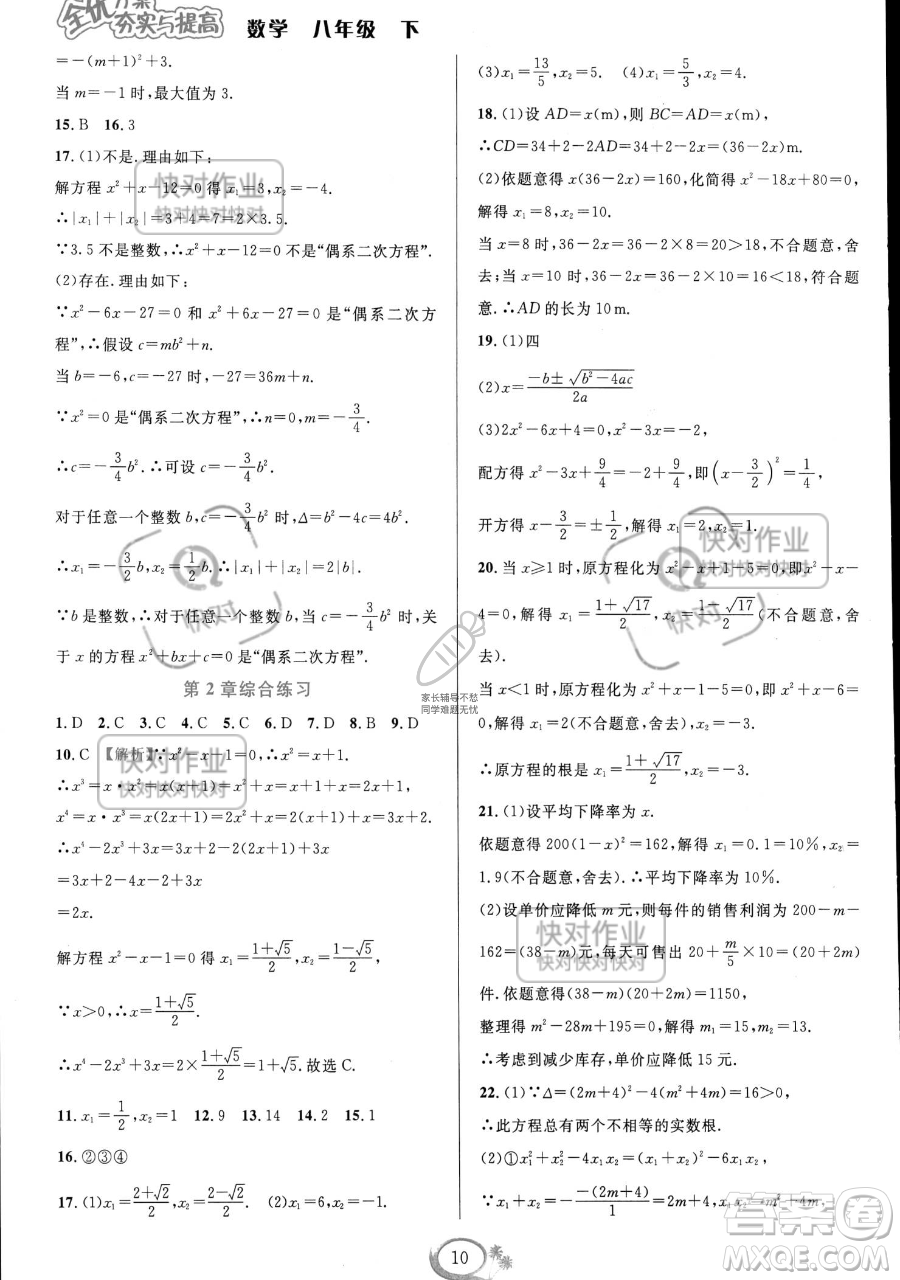 全优方案
夯实与提高
数学 八年级 下
=-(m+1)²+3.
当 m=-1 时,最大值为 3.
15. B 16. 3
17. (1)不是. 理由如下:
解方程 x²+x-12=0 得 x₁=3,x₂=-4.
∴|x₁|+|x₂|=3+4=7=2×3.5.
∵3.5 不是整数,∴x²+x-12=0 不是“偶系二次方程”.
(2)存在. 理由如下:
∵x²-6x-27=0 和 x²+6x-27=0 是“偶系二次方
程”,∴假设 c=mb²+n.
当 b=-6,c=-27 时,-27=36m+n.
∵x²=0 是“偶系二次方程”,∴n=0,m=-3/4.
∴c=-3/4b². ∴可设 c=-3/4b².
对于任意一个整数 b,c=-3/4b² 时,Δ=b²-4c=4b².
∴x₁=-3/2b,x₂=1/2b. ∴|x₁|+|x₂|=2|b|.
∵b 是整数,∴对于任意一个整数 b,当 c=-3/4b² 时,关
于 x 的方程 x²+bx+c=0 是“偶系二次方程”.
第 2 章综合练习
1. D 2. C 3. C 4. C 5. C 6. D 7. D 8. B 9. D
10. C 【解析】∵x²-x-1=0,∴x²=x+1.
∴x³=x·x²=x(x+1)=2x+1,
x⁴=x·x³=x(2x+1)=2x²+x=3x+2.
∴x⁴-2x³+3x
=3x+2-2(2x+1)+3x
=3x+2-4x-2+3x
=2x.
解方程 x²-x-1=0 得 x₁=(1+√5)/2,x₂=(1-√5)/2.
∵x>0,∴x=(1+√5)/2.
∴x⁴-2x³+3x=2×(1+√5)/2=1+√5. 故选 C.
11. x₁=1/2,x₂=1 12. 9 13. 14 14. 2 15. 1
16. ②③④
17. (1)x₁=(2+√2)/2,x₂=(2-√2)/2. (2)x₁=6,x₂=-1.
(3)x₁=13/5,x₂=5. (4)x₁=5/3,x₂=4.
18. (1)设 AD=x(m),则 BC=AD=x(m),
∴CD=34+2-2AD=34+2-2x=(36-2x)m.
(2)依题意得 x(36-2x)=160,化简得 x²-18x+80=0,
解得 x₁=8,x₂=10.
当 x=8 时,36-2x=36-2×8=20>18,不合题意,舍
去;当 x=10 时,36-2x=36-2×10=16<18,符合题
意. ∴AD 的长为 10 m.
19. (1)四
(2)x=(-b±√(b²-4ac))/2a
(3)2x²-6x+4=0,x²-3x=-2,
配方得 x²-3x+9/4=-2+9/4,即(x-3/2)²=1/4,
开方得 x-3/2=±1/2,解得 x₁=2,x₂=1.
20. 当 x≥1 时,原方程化为 x²-x+1-5=0,即 x²-x-
4=0,解得 x₁=(1+√17)/2,x₂=(1-√17)/2(不合题意,舍
去).
当 x<1 时,原方程化为 x²+x-1-5=0,即 x²+x-6=
0,解得 x₁=2(不合题意,舍去),x₂=-3.
∴原方程的根是 x₁=(1+√17)/2,x₂=-3.
21. (1)设平均下降率为 x.
依题意得 200(1-x)²=162,解得 x₁=0.1=10%,x₂=
1.9(不合题意,舍去). ∴平均下降率为 10%.
(2)设单价应降低 m 元,则每件的销售利润为 200-m-
162=(38-m)元,每天可售出 20+m/5×10=(20+2m)
件. 依题意得(38-m)(20+2m)=1150,
整理得 m²-28m+195=0,解得 m₁=15,m₂=13.
∴考虑到减少库存,单价应降低 15 元.
22. (1)∵Δ=(2m+4)²-4(m²+4m)=16>0,
∴此方程总有两个不相等的实数根.
(2)①x₁²+x₂²=(x₁+x₂)²-2x₁x₂.
∵x₁+x₂=-(-(2m+4))/1=2m+4,x₁x₂=m²+4m,
10
快对作业
快对快对快对
快对作业
快对快对快对
快对作业
快对快对快对
快对作业
快对快对快对
快对
快对
家长辅导不愁
同学难题无忧
答案圈
MXQE.COM